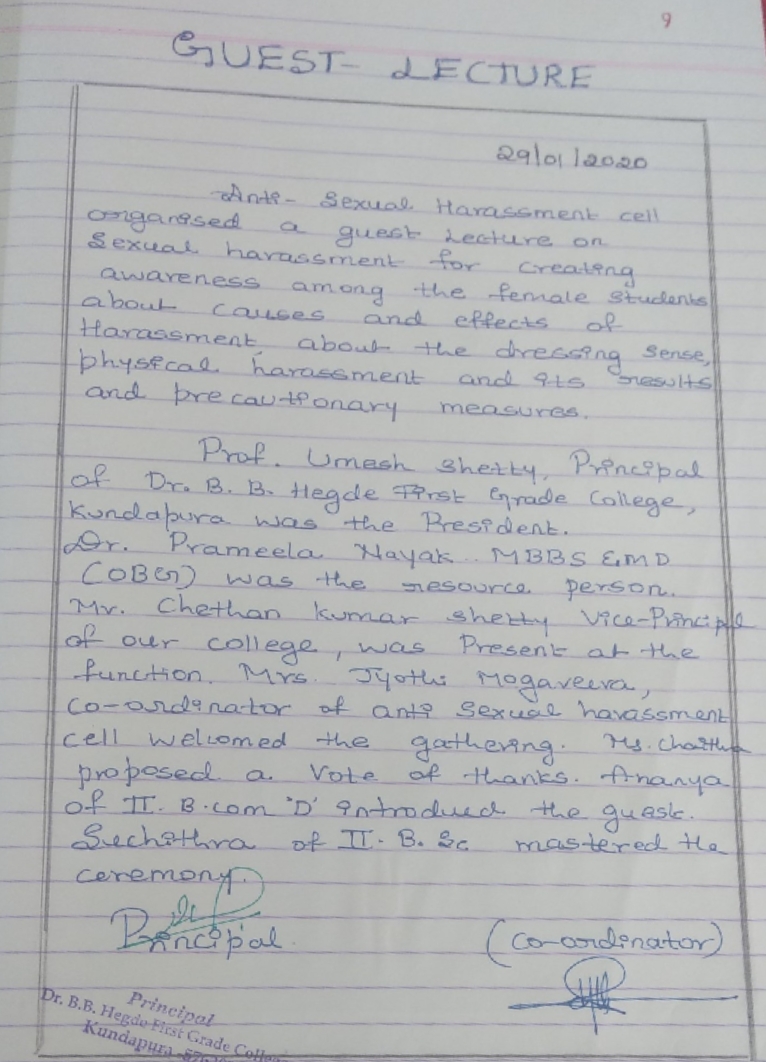 9
GUEST- LECTURE
29/01/2020
Anti- Sexual Harassment cell
organised a guest Lecture on
Sexual harassment for creating
awareness among the female Students
about causes and effects of
Harassment, about the dressing sense,
physical harassment and its results
and precautionary measures.
Prof. Umesh Shetty, Principal
of Dr. B. B. Hegde First Grade College,
Kundapura was the President.
Dr. Prameela Nayak MBBS & MD
(OBG) was the resource person.
Mr. Chethan Kumar Shetty Vice-Principal
of our college, was Present at the
function. Mrs. Jyothi Mogaveera,
Co-ordinator of anti Sexual harassment
cell welcomed the gathering. Ms.
proposed a Vote of thanks. Ananya
of II. B.com 'D' introdued the guest.
Suchithra of II. B. Sc mastered the
ceremony.
Principal.
(Co-ordinator)
Principal
Dr. B.B. Hegde First Grade College
Kundapura